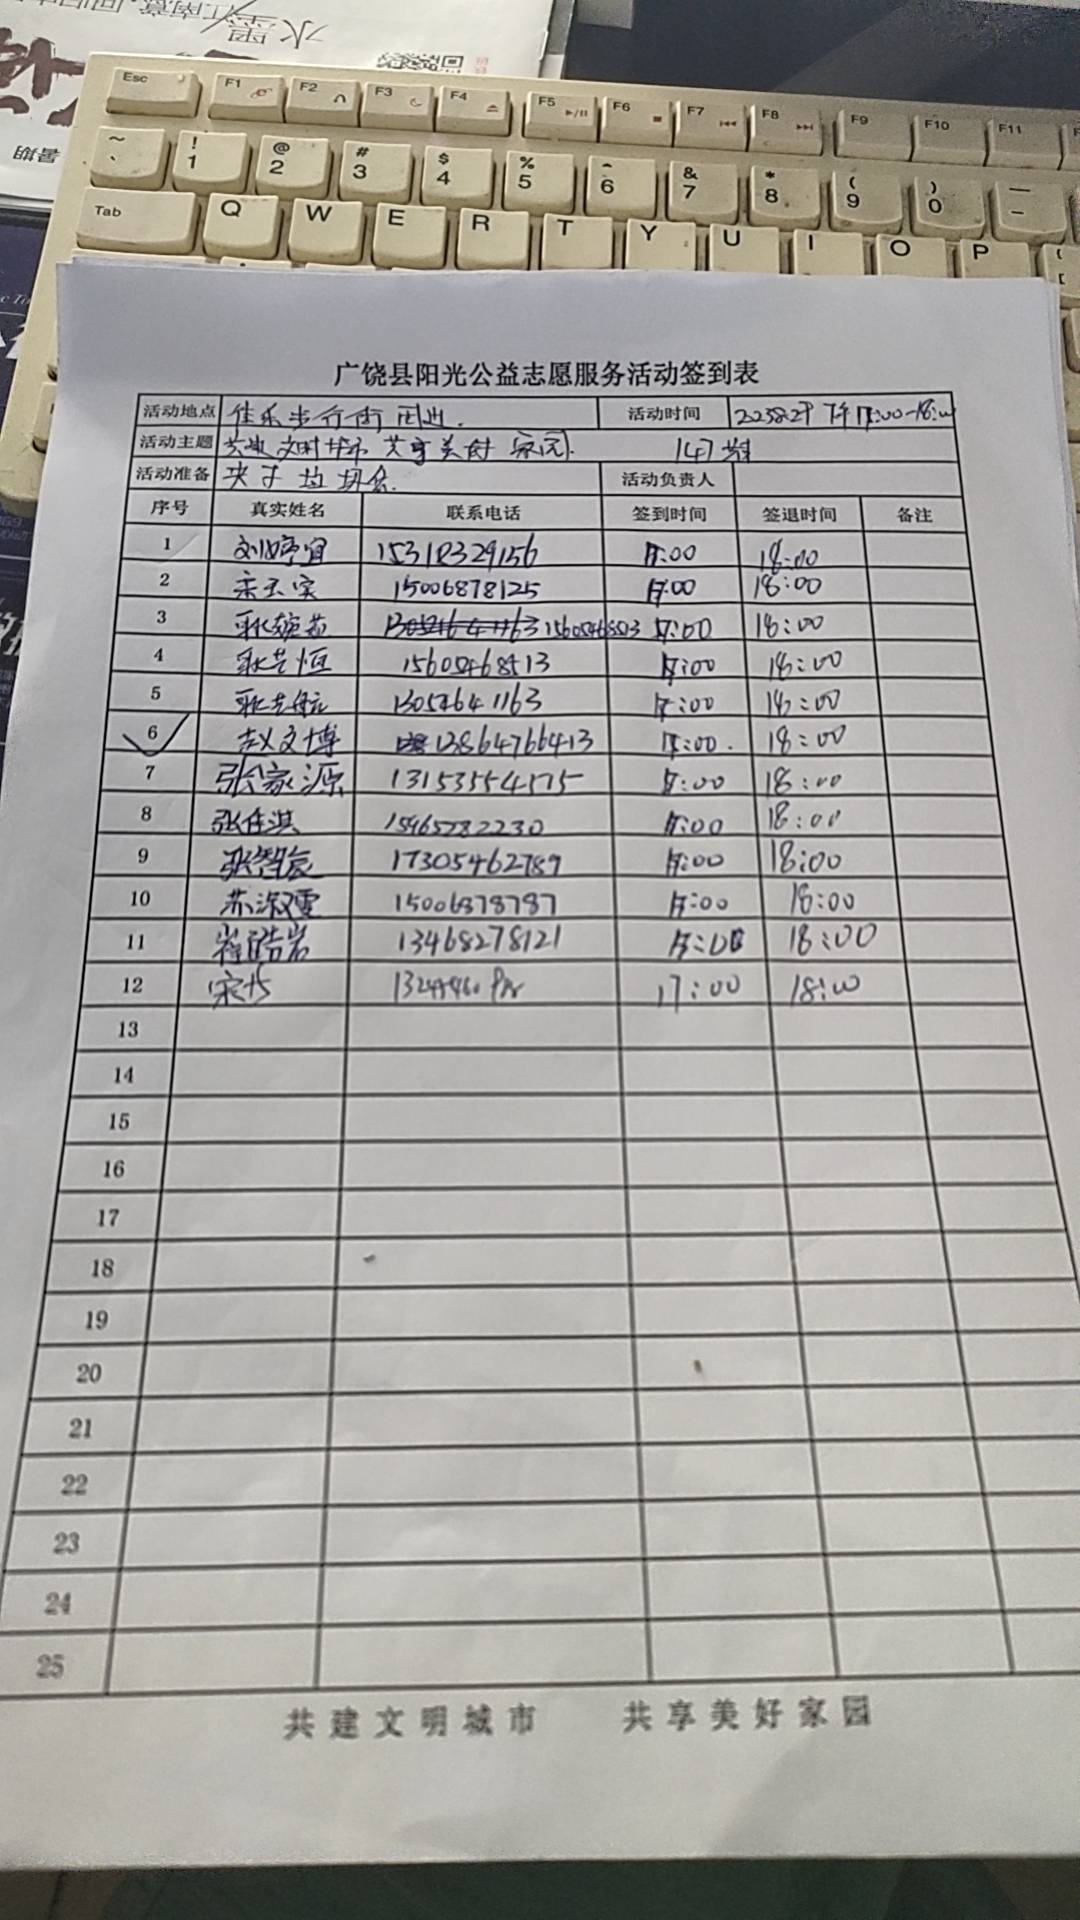 水墨
江南意
暑期
Esc F1 F2 F3 F4 F5 F6 F7 F8 F9 F10 F11
~ ` ! 1 @ 2 # 3 $ 4 % 5 ^ 6 & 7 * 8 ( 9 ) 0 — -
Tab Q W E R T Y U I O P
广饶县阳光公益志愿服务活动签到表
活动地点 佳乐步行街周边. 活动时间 下午17:00-18:00
活动主题 共建文明城市 共享美好家园. 147期
活动准备 夹子 垃圾袋. 活动负责人
序号 真实姓名 联系电话 签到时间 签退时间 备注
1 17:00 18:00
2 15006878125 17:00 18:00
3 17:00 18:00
4 耿艺恒 15605468513 17:00 18:00
5 耿艺航 13054641163 17:00 18:00
6 赵文博 13864766413 17:00. 18:00
7 张家源 17:00 18:00
8 张佳淇 15965282230 17:00 18:00
9 张智宸 17305462789 17:00 18:00
10 苏淑雯 15006878787 17:00 18:00
11 崔皓岩 13468278121 17:00 18:00
12 17:00 18:00
13
14
15
16
17
18
19
20
21
22
23
24
25
共建文明城市 共享美好家园